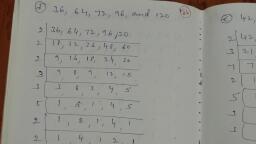 36, 64, 72, 96, and 120
2 | 36, 64, 72, 96, 120
2 | 18, 32, 36, 48, 60
2 | 9, 16, 18, 24, 30
3 | 9 8, 9, 12, 15
3 | 3 8 3 4, 5
5 | 1, 8, 1, 4, 5
2 | 1, 8, 1, 4, 1
2 | 1, 4, 1 2, 1
42,